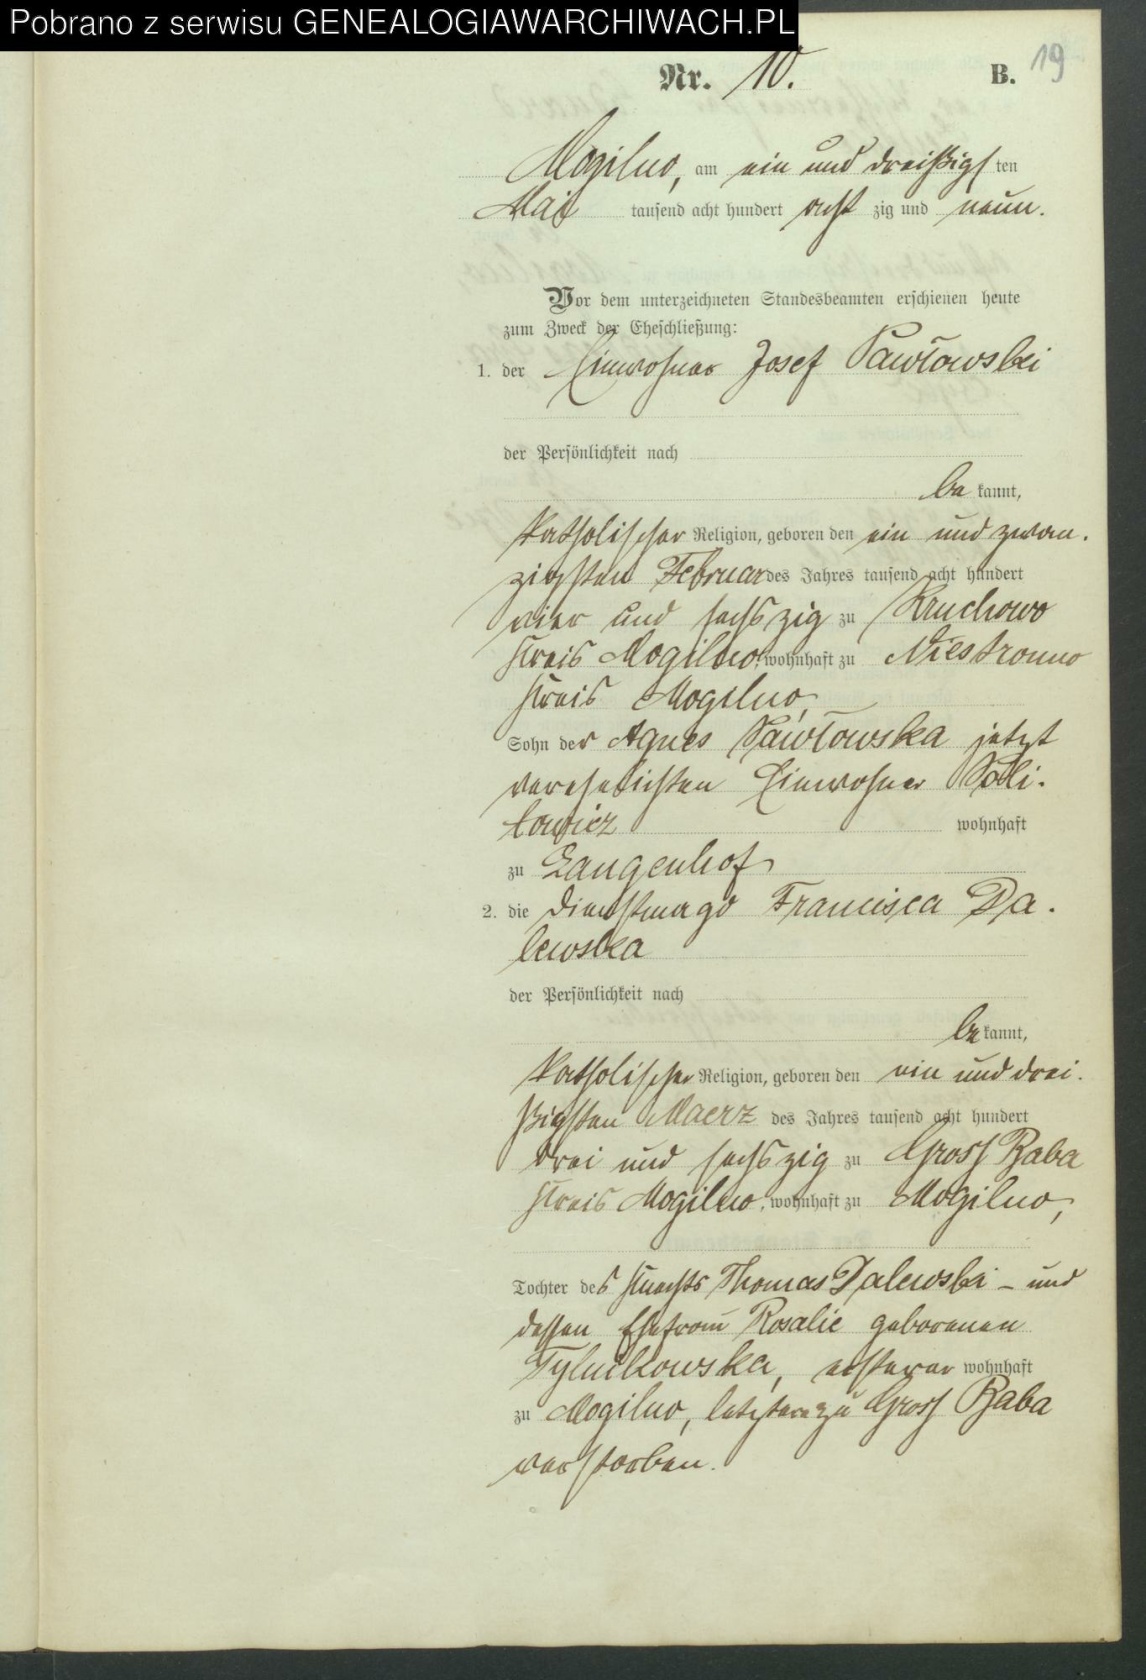 Pobrano z serwisu GENEALOGIAWARCHIWACH.PL
19
Nr. 10. B.
Mogilno, am ein und dreißigsten
Mai tausend acht hundert acht zig und neun.
Vor dem unterzeichneten Standesbeamten erschienen heute
zum Zweck der Eheschließung:
1. der Einwohner Josef Pawłowski
der Persönlichkeit nach
be kannt,
katholischer Religion, geboren den ein und zwan-
zigsten Februar des Jahres tausend acht hundert
vier und sechszig zu Kruchowo
Kreis Mogilno, wohnhaft zu Niestronno
Kreis Mogilno,
Sohn der Agnes Pawłowska jetzt
verehelichten Einwohner
wohnhaft
zu Langenhof
2. die Dienstmagd Francisca Da-
lewska
der Persönlichkeit nach
be kannt,
katholischer Religion, geboren den ein und drei-
ßigsten Maerz des Jahres tausend acht hundert
drei und sechszig zu Gross Baba
Kreis Mogilno, wohnhaft zu Mogilno,
Tochter des Knechts Thomas Dalewski - und
dessen Ehefrau Rosalie geborenen
ersterer wohnhaft
zu Mogilno, letztere zu Gross Baba
verstorben.